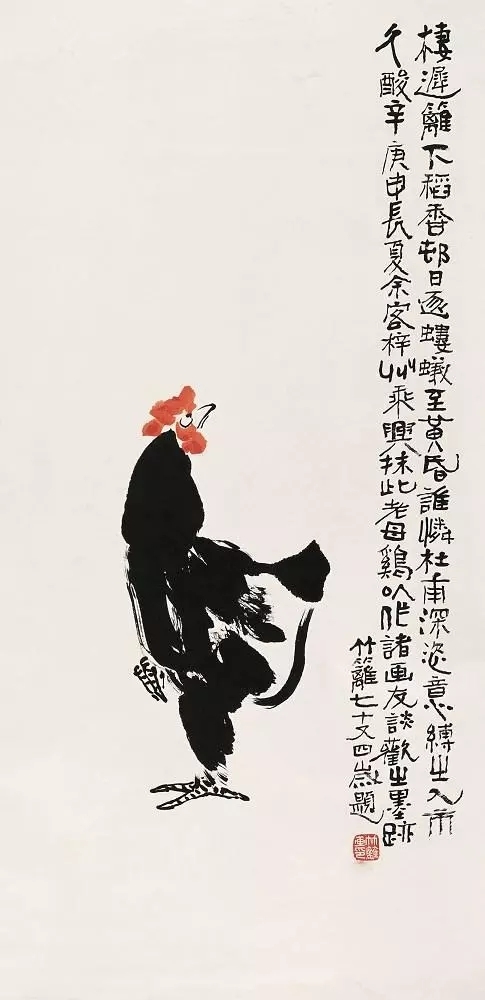 棲遲籬下稻香邨日逐螻蟻至黃昏誰憐杜甫深恣意縛之入市
久酸辛庚申長夏余客梓州乘興抹此老母鷄以作諸画友談歡之墨跡
竹籬七十又四歲題